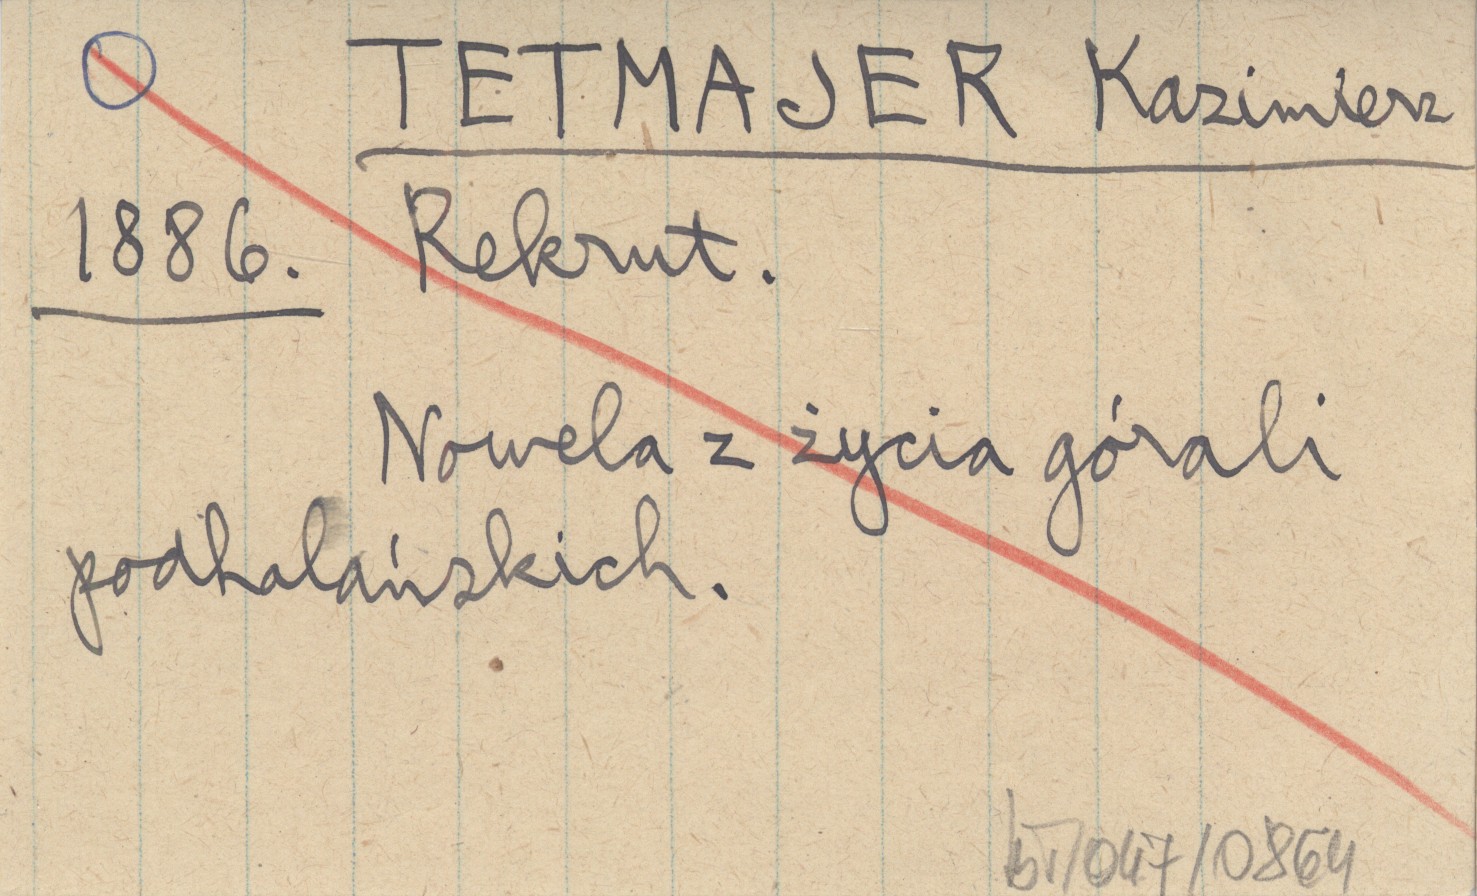 TETMAJER Kazimierz
1886. Rekrut.
Nowela z życia górali
podhalańskich.
bı/047/0864